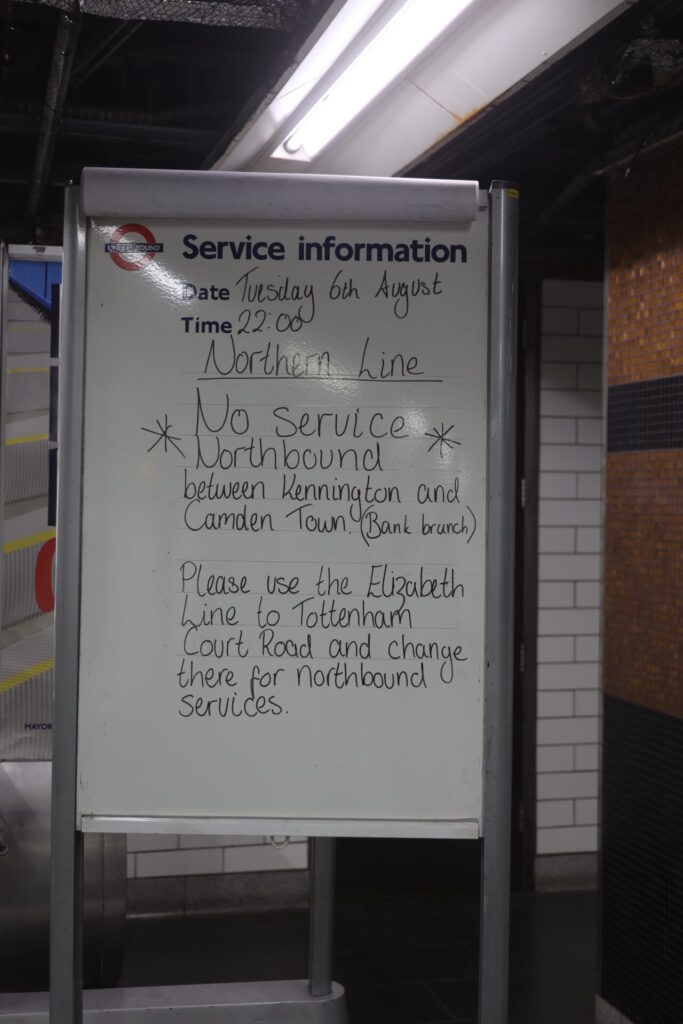 UNDERGROUND
Service information
Date Tuesday 6th August
Time 22:00
Northern Line
* No service *
Northbound
between Kennington and
Camden Town. (Bank branch)
Please use the Elizabeth
Line to Tottenham
Court Road and change
there for northbound
services.
MAYOR